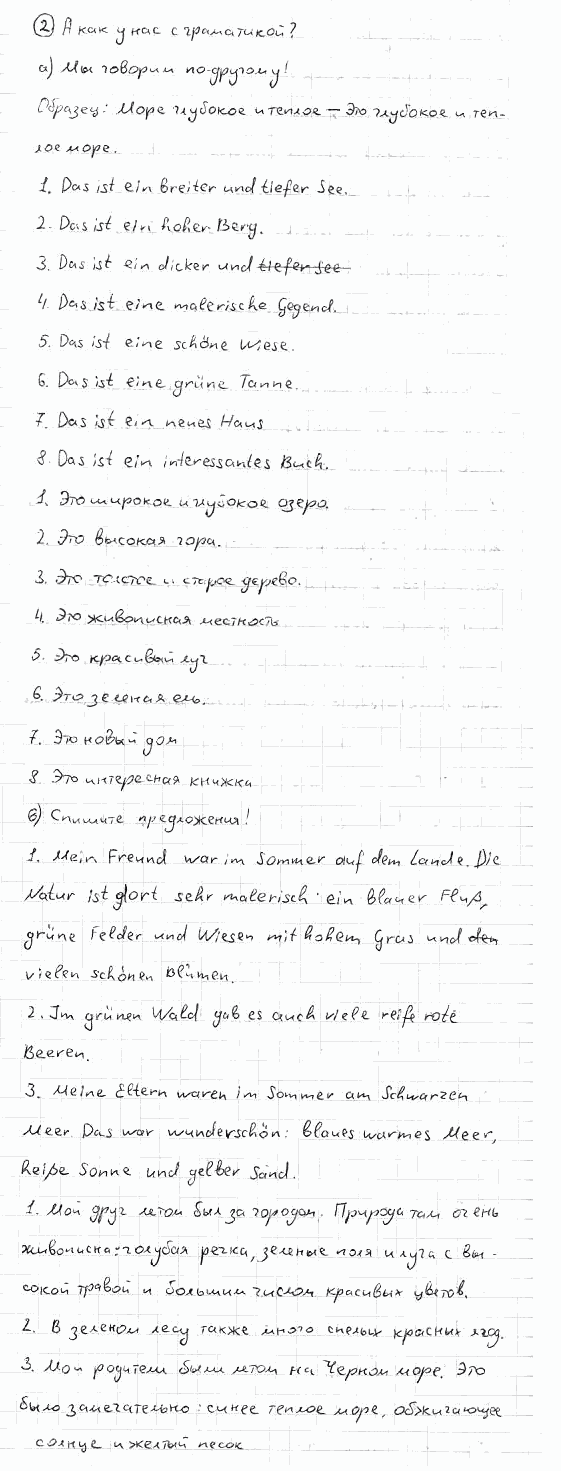 ② А как у нас с граматикой?
а) Мы говорим по-другому!
Образец: Море глубокое и теплое – Это глубокое и теп-
лое море.
1. Das ist ein breiter und tiefer See.
2. Das ist ein hoher Berg.
3. Das ist ein dicker und tiefer see
4. Das ist eine malerische Gegend.
5. Das ist eine schöne Wiese.
6. Das ist eine grüne Tanne.
7. Das ist ein neues Haus
8. Das ist ein interessantes Buch.
1. Это широкое и глубокое озеро.
2. Это высокая гора.
3. Это толстое и старое дерево.
4. Это живописная местность
5. Это красивый луг
6. Это зеленая ель.
7. Это новый дом
8. Это интересная книжка
в) Спишите предложения!
1. Mein Freund war im Sommer auf dem Lande. Die
Natur ist dort sehr malerisch: ein blauer Fluß,
grüne Felder und Wiesen mit hohem Gras und den
vielen schönen Blumen.
2. Im grünen Wald gab es auch viele reife rote
Beeren.
3. Meine Eltern waren im Sommer am Schwarzen
Meer. Das war wunderschön: blaues warmes Meer,
heiße Sonne und gelber Sand.
1. Мой друг летом был за городом. Природа там очень
живописна: голубая речка, зеленые поля и луга с вы-
сокой травой и большим числом красивых цветов.
2. В зеленом лесу также много спелых красных ягод.
3. Мои родители были летом на Черном море. Это
было замечательно: синее теплое море, обжигающее
солнце и желтый песок